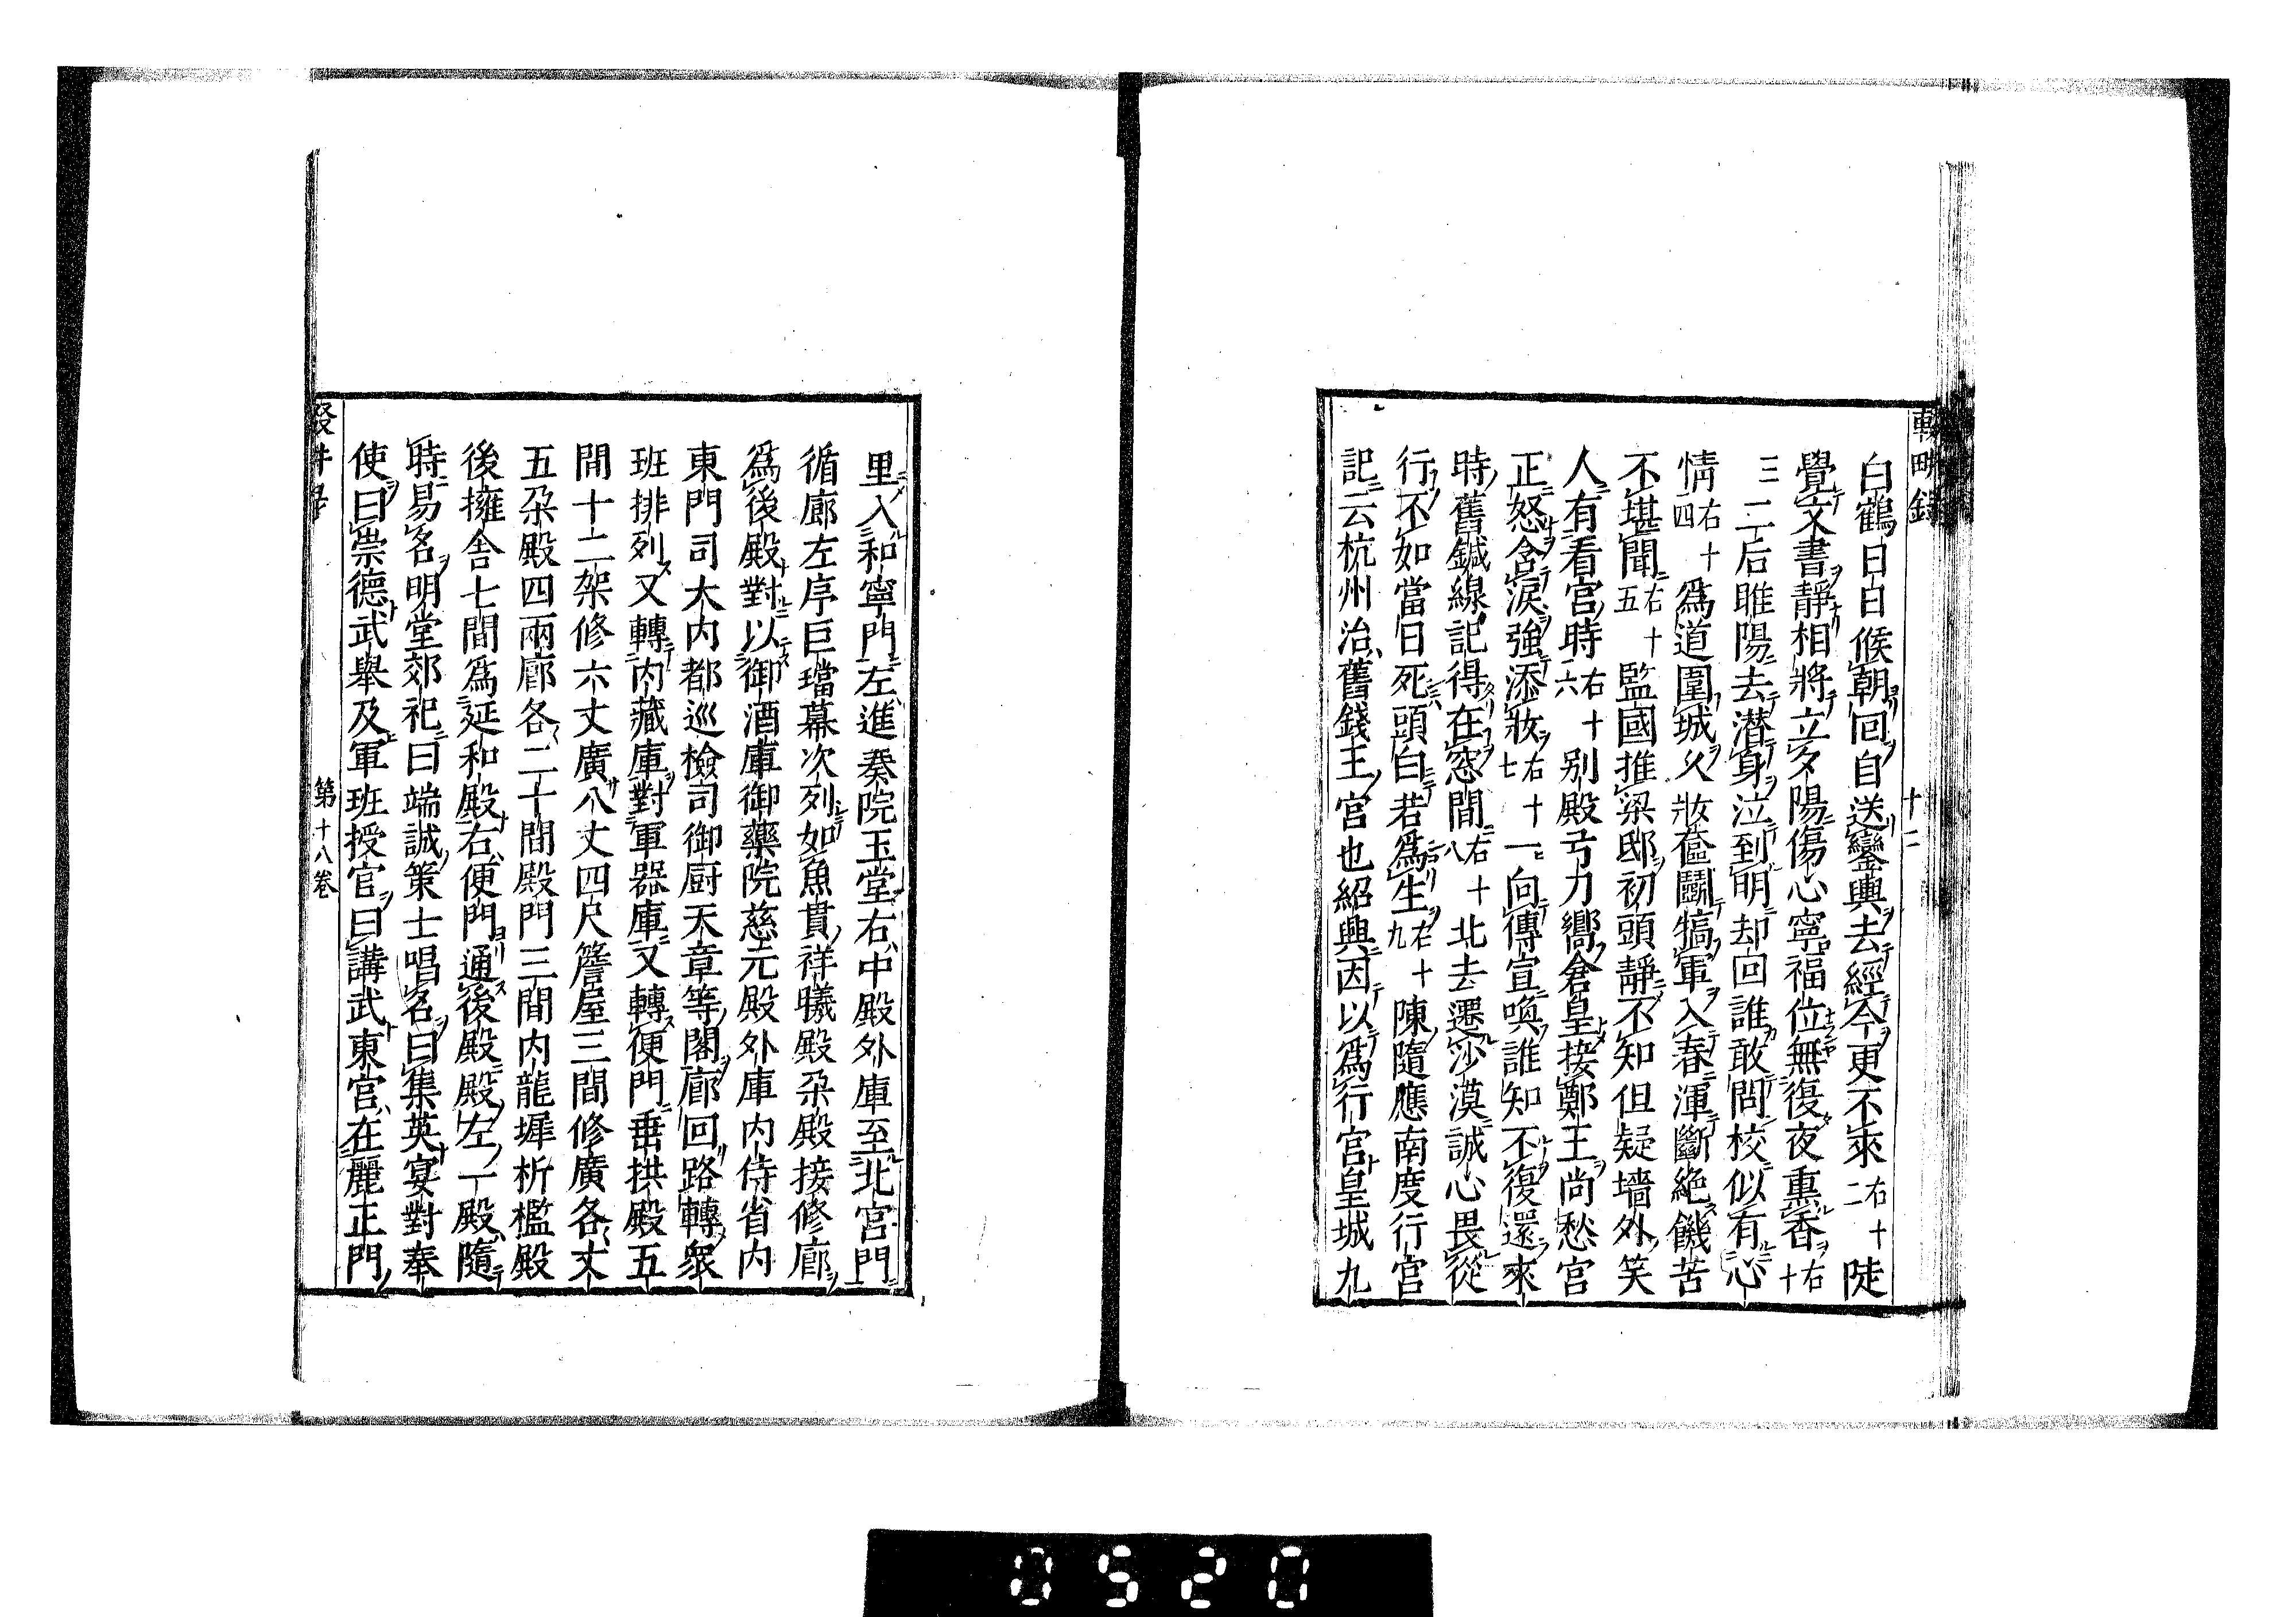 輟畊録
十二
白鶴日日候朝回自送鑾輿去經今更不來右十二陡
覺文書靜相將立夕陽傷心寧福位無復夜熏香右十
三二后睢陽去潜身泣到明却回誰敢問校似有心
情右十四爲道圍城久妝奩鬬犒軍入春渾斷絶饑苦
不堪聞右十五監國推梁邸初頭靜不知但疑墻外笑
人有看宮時右十六别殿弓刀嚮倉皇接鄭王尚愁宮
正怒含淚強添妝右十七一向傳宣喚誰知不復還來
時舊鍼線記得在窓間右十八北去遷沙漠誠心畏從
行不如當日死頭白若爲生右十九陳隨應南度行宮
記云杭州治舊錢王宮也紹興因以爲行宮皇城九
里入和寧門左進奏院玉堂右中殿外庫至北宮門
循廊左序巨璫幕次列如魚貫祥曦殿朶殿接修廊
爲後殿對以御酒庫御藥院慈元殿外庫内侍省内
東門司大内都巡檢司御厨天章等閣廊回路轉衆
班排列又轉内藏庫對軍器庫又轉便門垂拱殿五
間十二架修六丈廣八丈四尺簷屋三間修廣各丈
五朶殿四兩廊各二十間殿門三間内龍墀析檻殿
後擁舍七間爲延和殿右便門通後殿殿左一殿隨
時易名明堂郊祀曰端誠策士唱名曰集英宴對奉
使曰崇德武舉及軍班授官曰講武東宮在麗正門
第十八卷